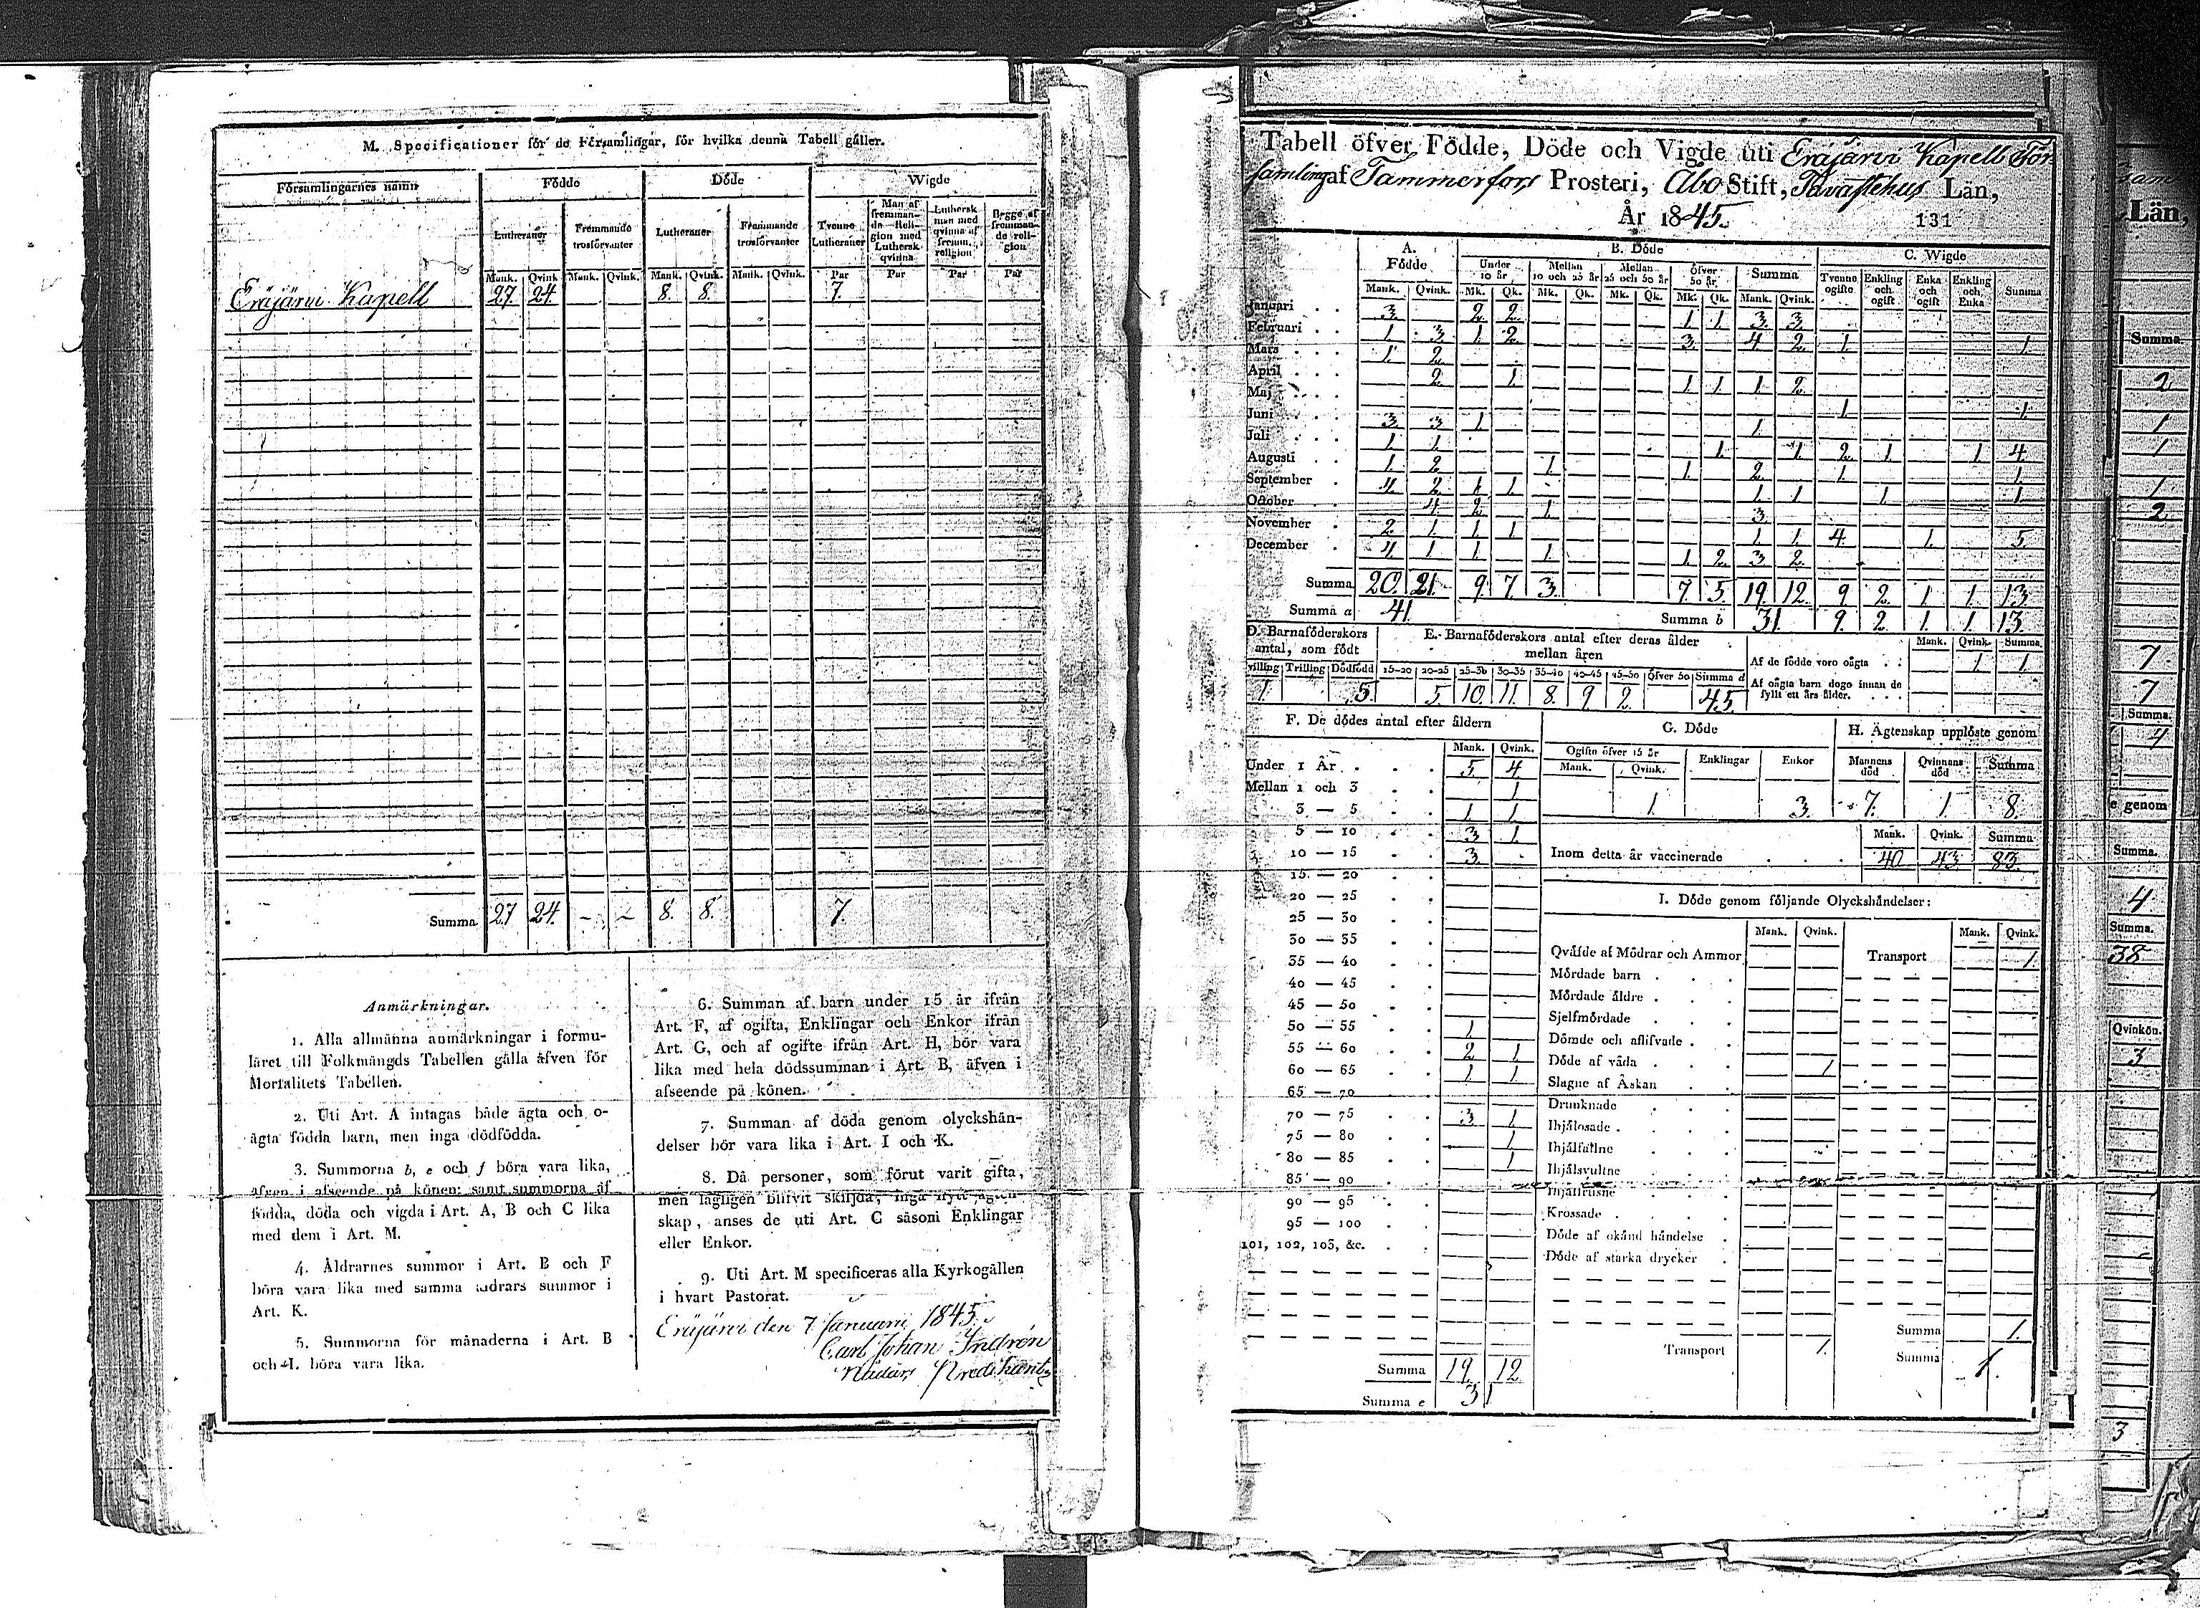 M. Specificationer för de Församlingar, för hvilka denna Tabell gäller.
Församlingarnes namn
Födde
Döde
Wigde
Lutheraner
Främmande trosförvanter
Lutheraner
Främmande trosförvanter
Tvenne Lutheraner
Man af fremmande Religion med Luthersk qvinna
Luthersk man med qvinna af fremm. religion
Begge af fremmande religion
Mank. Qvink Mank. Qvink. Mank. Qvink. Mank. Qvink. Par Par Par Par
Eräjärvi Kapell 27. 24. 8. 8. 7.
Summa 27 24. - - 8. 8. 7.
Anmärkningar.
1. Alla allmänna anmärkningar i formu-
läret till Folkmängds Tabellen gälla äfven för
Mortalitets Tabellen.
2. Uti Art. A intagas både ägta och o-
ägta födda barn, men inga dödfödda.
3. Summorna b, e och f böra vara lika,
äfven i afseende på könen; samt summorna af
födda, döda och vigda i Art. A, B och C lika
med dem i Art. M.
4. Åldrarnes summor i Art. B och F
böra vara lika med samma åldrars summor i
Art. K.
5. Summorna för månaderna i Art. B
och L. böra vara lika.
6. Summan af barn under 15 år ifrån
Art. F, af ogifta, Enklingar och Enkor ifrån
Art. G, och af ogifte ifrån Art. H, bör vara
lika med hela dödssumman i Art. B, äfven i
afseende på könen.
7. Summan af döda genom olyckshän-
delser bör vara lika i Art. I och K.
8. Då personer, som förut varit gifta,
men lagligen blifvit skiljda, ingå nytt ägten-
skap, anses de uti Art. C såsom Enklingar
eller Enkor.
9. Uti Art. M specificeras alla Kyrkogällen
i hvart Pastorat.
Eräjärvi den 7 Januari 1845.
Carl Johan
Tabell öfver Födde, Döde och Vigde uti Eräjärvi Kapell För
samling af Tammerfors Prosteri, Åbo Stift, Tavastehus Län,
År 1845. 131
A. Födde
B. Döde
C. Wigde
Under 10 år
Mellan 10 och 25 år
Mellan 25 och 50 år
Öfver 50 år
Summa
Tvenne ogifte
Enkling och ogift
Enka och ogift
Enkling och Enka
Summa
Mank. Qvink. Mk. Qk. Mk. Qk. Mk. Qk. Mk. Qk. Mank. Qvink.
Januari 3. 2 2 1 1 3 3
Februari 1 3 1 2 3. 4 2. 1. 1.
Mars 1 2
April 2. 1 1 1 1 2.
Maj 1. 1.
Juni 3. 3 1 1.
Juli 1 1 1. 1. 2. 1. 1 4.
Augusti 1. 2. 1. 1. 2. 1. 1.
September 4. 2 1 1 1 1 1. 1.
October 4 2. 1. 3.
November 2 1. 1 1 1. 1. 4. 1. 5.
December 4 1 1. 1. 1 2. 3 2.
Summa 20. 21. 9. 7. 3. 7. 5. 19. 12. 9 2. 1. 1. 13.
Summa a 41. Summa b 31. 9. 2. 1. 1. 13.
D. Barnaföderskors antal, som födt
E. Barnaföderskors antal efter deras ålder mellan åren
Mank. Qvink. Summa
villing Trilling Dödfödd 15-20 20-25 25-30 30-35 35-40 40-45 45-50 Öfver 50 Summa d
1. 5. 5 10 11. 8. 9 2. 45.
Af de födde voro oägta 1 1.
Af oägta barn dogo innan de fyllt ett års ålder.
F. De dödes antal efter åldern
Mank. Qvink.
Under 1 År 5 4
Mellan 1 och 3 1
3 — 5 1 1
5 — 10 3 1.
10 — 15 3.
15 — 20
20 — 25
25 — 30
30 — 35
35 — 40
40 — 45
45 — 50
50 — 55 1
55 — 60 2 1
60 — 65 1 1
65 — 70
70 — 75 3 1
75 — 80 1
80 — 85 1
85 — 90
90 — 95
95 — 100
101, 102, 103, &c.
Summa 19. 12
Summa e 31
G. Döde
Ogifta öfver 15 år
Mank. Qvink. Enklingar Enkor
1. 3.
H. Ägtenskap upplöste genom
Mannens död Qvinnans död Summa
7. 1. 8.
Mank. Qvink. Summa
Inom detta år vaccinerade 40 43 83.
I. Döde genom följande Olyckshändelser:
Mank. Qvink. Mank. Qvink.
Qväfde af Mödrar och Ammor Transport 1.
Mördade barn
Mördade äldre
Sjelfmördade
Dömde och aflifvade
Döde af våda 1
Slagne af Åskan
Drunknade
Ihjälosade
Ihjälfallne
Ihjälsvultne
Ihjälfrusne
Krossade
Döde af okänd händelse
Döde af starka drycker
Summa 1.
Transport 1. Summa 1.
Län,
Summa
2
1
1
1
2
7.
7
Summa.
4
e genom
Summa.
4
Summa.
38
Qvinkön.
3
3